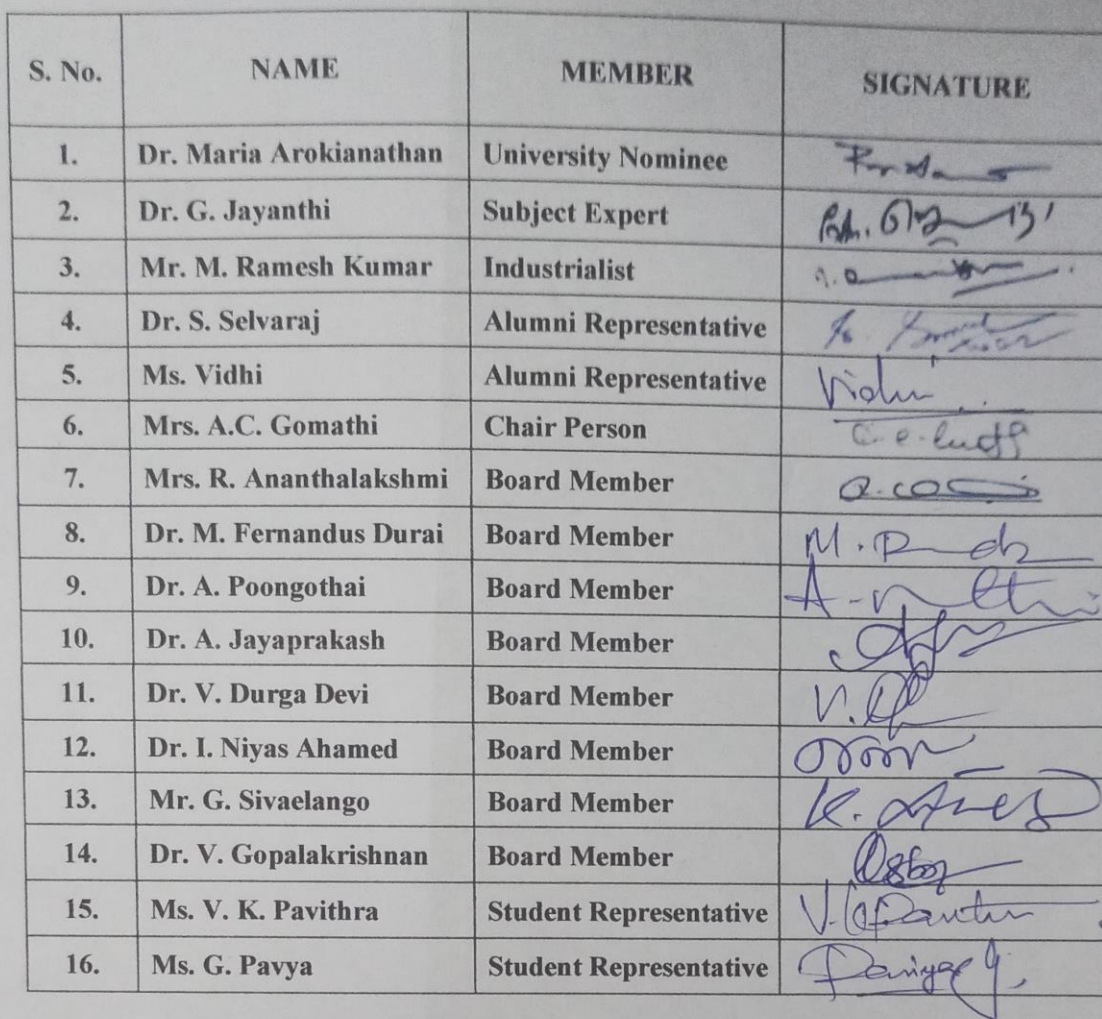 S. No. NAME MEMBER SIGNATURE
1. Dr. Maria Arokianathan University Nominee
2. Dr. G. Jayanthi Subject Expert
3. Mr. M. Ramesh Kumar Industrialist
4. Dr. S. Selvaraj Alumni Representative
5. Ms. Vidhi Alumni Representative Vidhi
6. Mrs. A.C. Gomathi Chair Person
7. Mrs. R. Ananthalakshmi Board Member
8. Dr. M. Fernandus Durai Board Member
9. Dr. A. Poongothai Board Member
10. Dr. A. Jayaprakash Board Member
11. Dr. V. Durga Devi Board Member
12. Dr. I. Niyas Ahamed Board Member
13. Mr. G. Sivaelango Board Member
14. Dr. V. Gopalakrishnan Board Member
15. Ms. V. K. Pavithra Student Representative
16. Ms. G. Pavya Student Representative